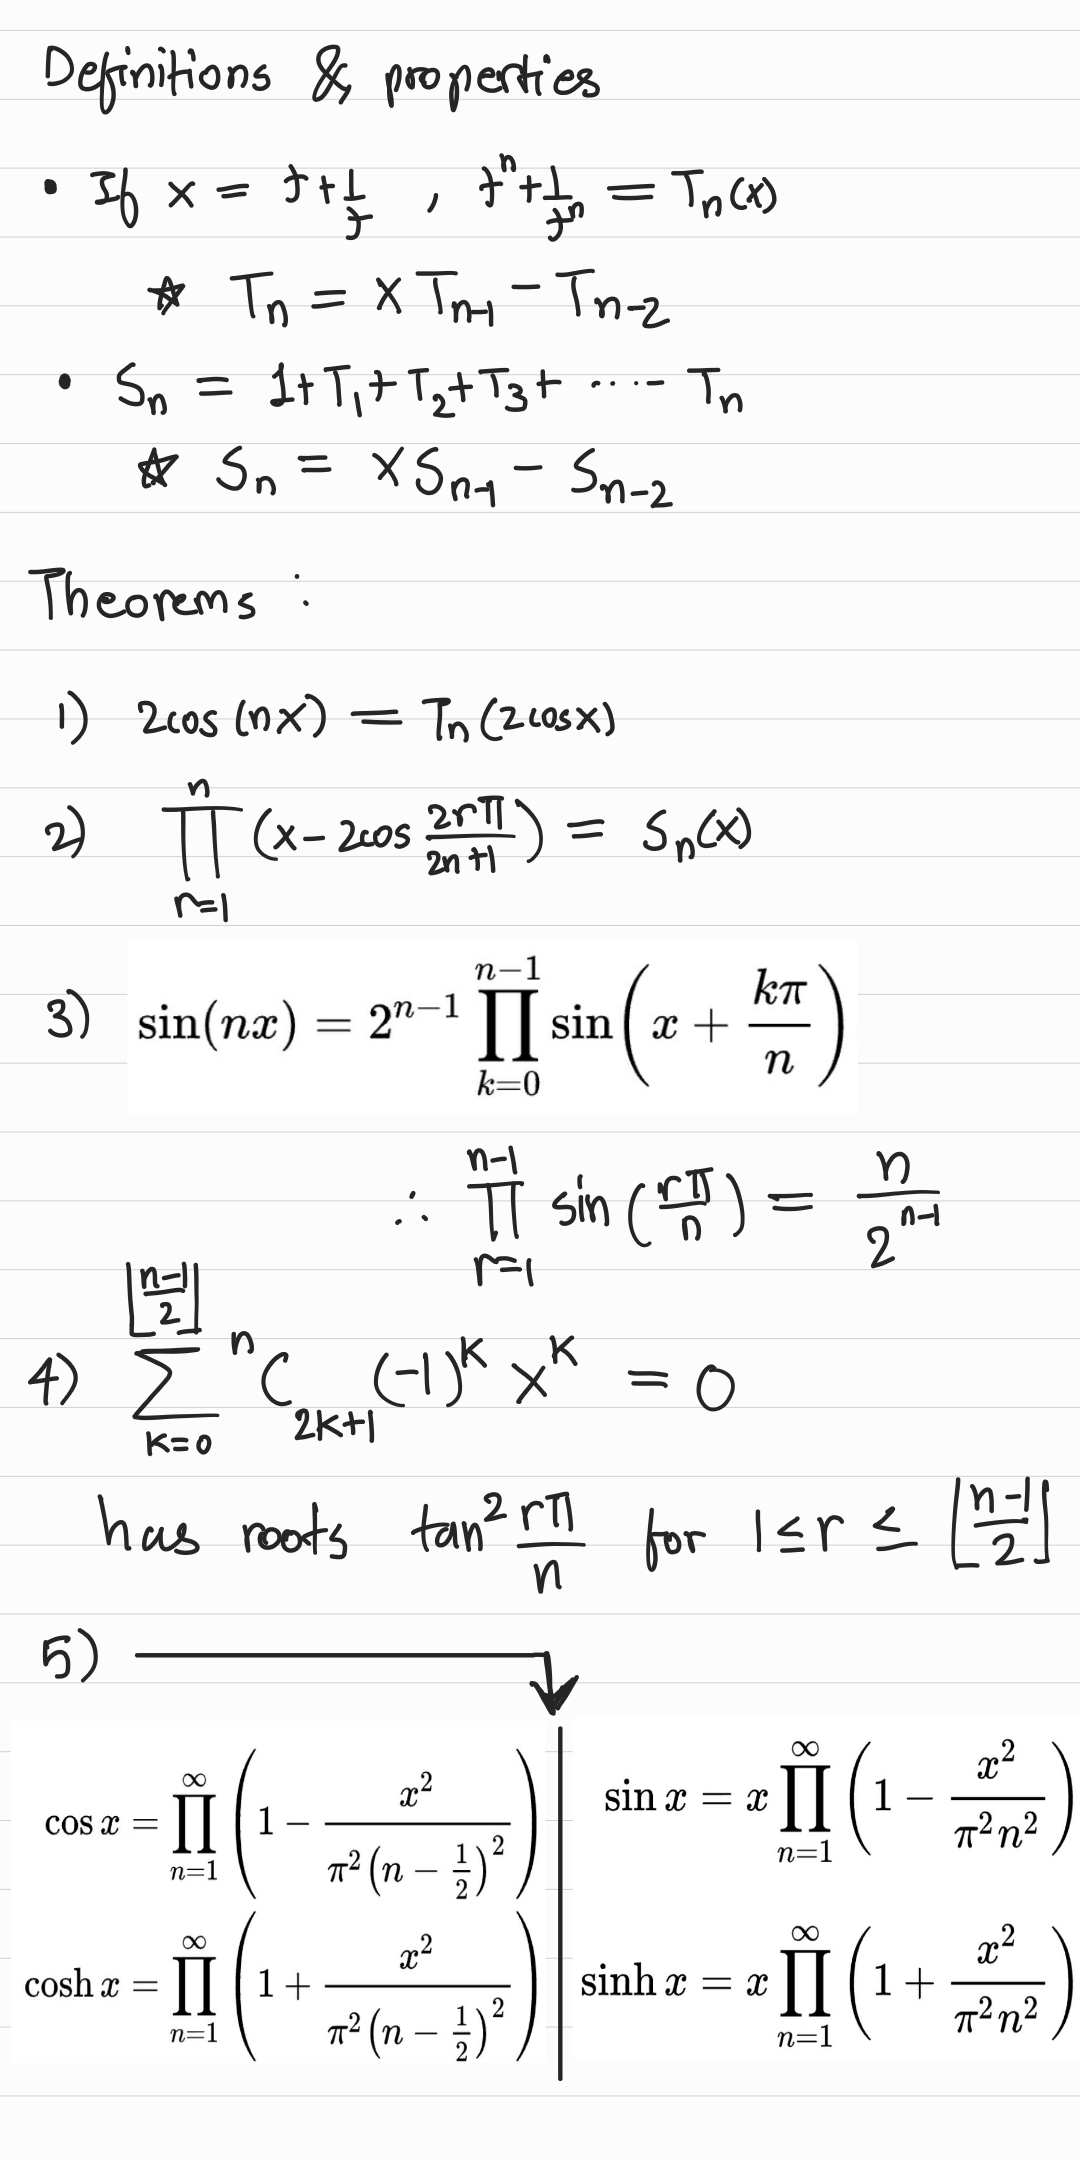 Definitions & properties
• If x = t + 1/t , tⁿ + 1/tⁿ = Tₙ(x)
☆ Tₙ = x Tₙ₋₁ − Tₙ₋₂
• Sₙ = 1 + T₁ + T₂ + T₃ + ..... Tₙ
☆ Sₙ = x Sₙ₋₁ − Sₙ₋₂
Theorems :
1) 2cos(nx) = Tₙ(2cosx)
2) ∏_{r=1}^{n} (x − 2cos 2rπ/(2n+1)) = Sₙ(x)
3) sin(nx) = 2^{n−1} ∏_{k=0}^{n−1} sin(x + kπ/n)
∴ ∏_{r=1}^{n−1} sin(rπ/n) = n/2^{n−1}
4) ∑_{k=0}^{⌊(n−1)/2⌋} ⁿC_{2k+1} (−1)^k x^k = 0
has roots tan² rπ/n for 1 ≤ r ≤ ⌊(n−1)/2⌋
5)
cos x = ∏_{n=1}^{∞} (1 − x²/(π²(n − 1/2)²))
cosh x = ∏_{n=1}^{∞} (1 + x²/(π²(n − 1/2)²))
sin x = x ∏_{n=1}^{∞} (1 − x²/(π²n²))
sinh x = x ∏_{n=1}^{∞} (1 + x²/(π²n²))